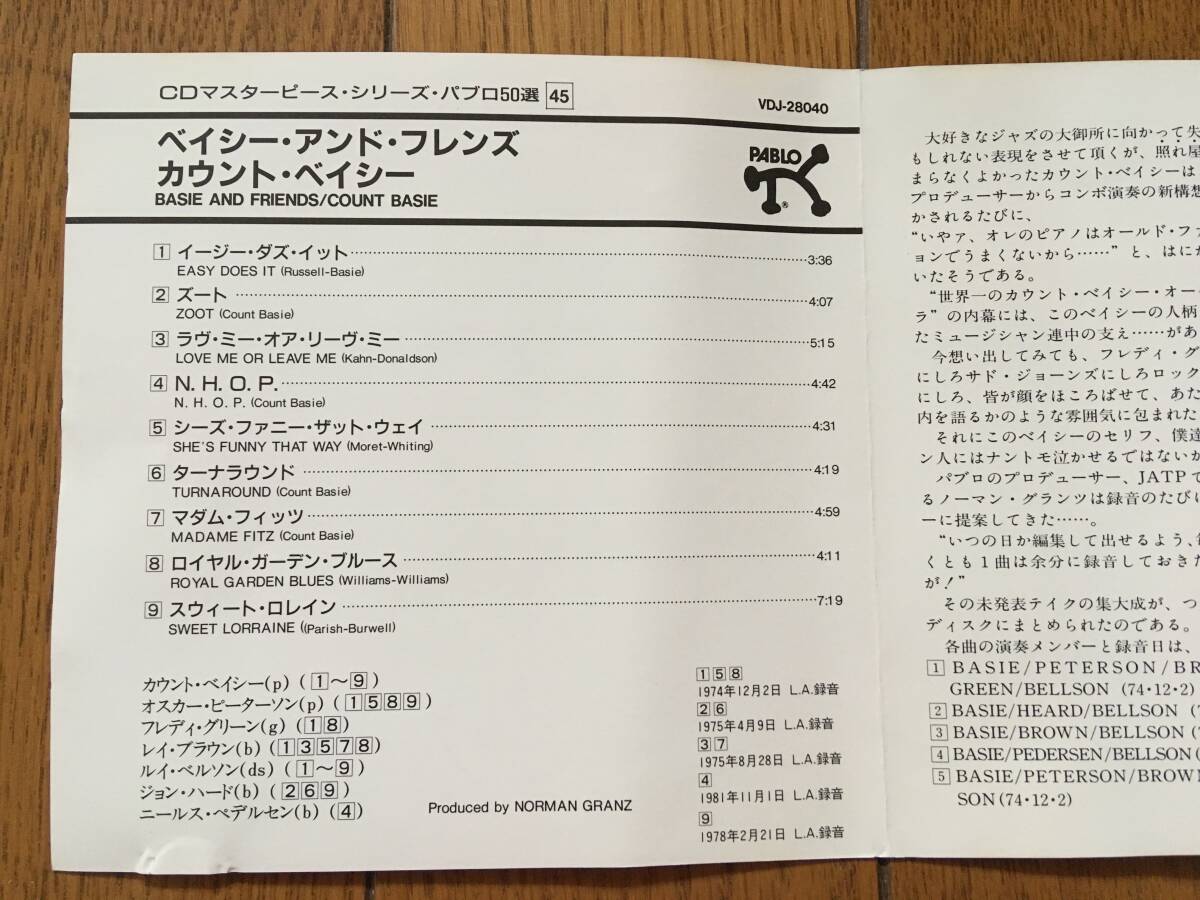 CDマスターピース・シリーズ・パブロ50選 45
VDJ-28040
ベイシー・アンド・フレンズ
カウント・ベイシー
BASIE AND FRIENDS/COUNT BASIE
PABLO
®
1 イージー・ダズ・イット 3:36
EASY DOES IT (Russell-Basie)
2 ズート 4:07
ZOOT (Count Basie)
3 ラヴ・ミー・オア・リーヴ・ミー 5:15
LOVE ME OR LEAVE ME (Kahn-Donaldson)
4 N. H. O. P. 4:42
N. H. O. P. (Count Basie)
5 シーズ・ファニー・ザット・ウェイ 4:31
SHE'S FUNNY THAT WAY (Moret-Whiting)
6 ターナラウンド 4:19
TURNAROUND (Count Basie)
7 マダム・フィッツ 4:59
MADAME FITZ (Count Basie)
8 ロイヤル・ガーデン・ブルース 4:11
ROYAL GARDEN BLUES (Williams-Williams)
9 スウィート・ロレイン 7:19
SWEET LORRAINE ((Parish-Burwell)
カウント・ベイシー(p) (1～9)
オスカー・ピーターソン(p) (1589)
フレディ・グリーン(g) (18)
レイ・ブラウン(b) (13578)
ルイ・ベルソン(ds) (1～9)
ジョン・ハード(b) (269)
ニールス・ペデルセン(b) (4)
Produced by NORMAN GRANZ
158
1974年12月2日 L.A.録音
26
1975年4月9日 L.A.録音
37
1975年8月28日 L.A.録音
4
1981年11月1日 L.A.録音
9
1978年2月21日 L.A.録音
大好きなジャズの大御所に向かって失
もしれない表現をさせて頂くが、照れ屋
まらなくよかったカウント・ベイシーは
プロデューサーからコンボ演奏の新構想
かされるたびに、
“いやァ、オレのピアノはオールド・ファ
ョンでうまくないから……”と、はにか
いたそうである。
“世界一のカウント・ベイシー・オー
ラ”の内幕には、このベイシーの人柄
たミュージシャン連中の支え……があ
今想い出してみても、フレディ・グ
にしろサド・ジョーンズにしろロック
にしろ、皆が顔をほころばせて、あた
内を語るかのような雰囲気に包まれた
それにこのベイシーのセリフ、僕達
ン人にはナントモ泣かせるではないか
パブロのプロデューサー、JATPで
るノーマン・グランツは録音のたびに
ーに提案してきた……。
“いつの日か編集して出せるよう、
くとも1曲は余分に録音しておきた
が！”
その未発表テイクの集大成が、つ
ディスクにまとめられたのである。
各曲の演奏メンバーと録音日は、
1 BASIE/PETERSON/BR
GREEN/BELLSON (74・12・2)
2 BASIE/HEARD/BELLSON (7
3 BASIE/BROWN/BELLSON (7
4 BASIE/PEDERSEN/BELLSON (
5 BASIE/PETERSON/BROWN
SON (74・12・2)